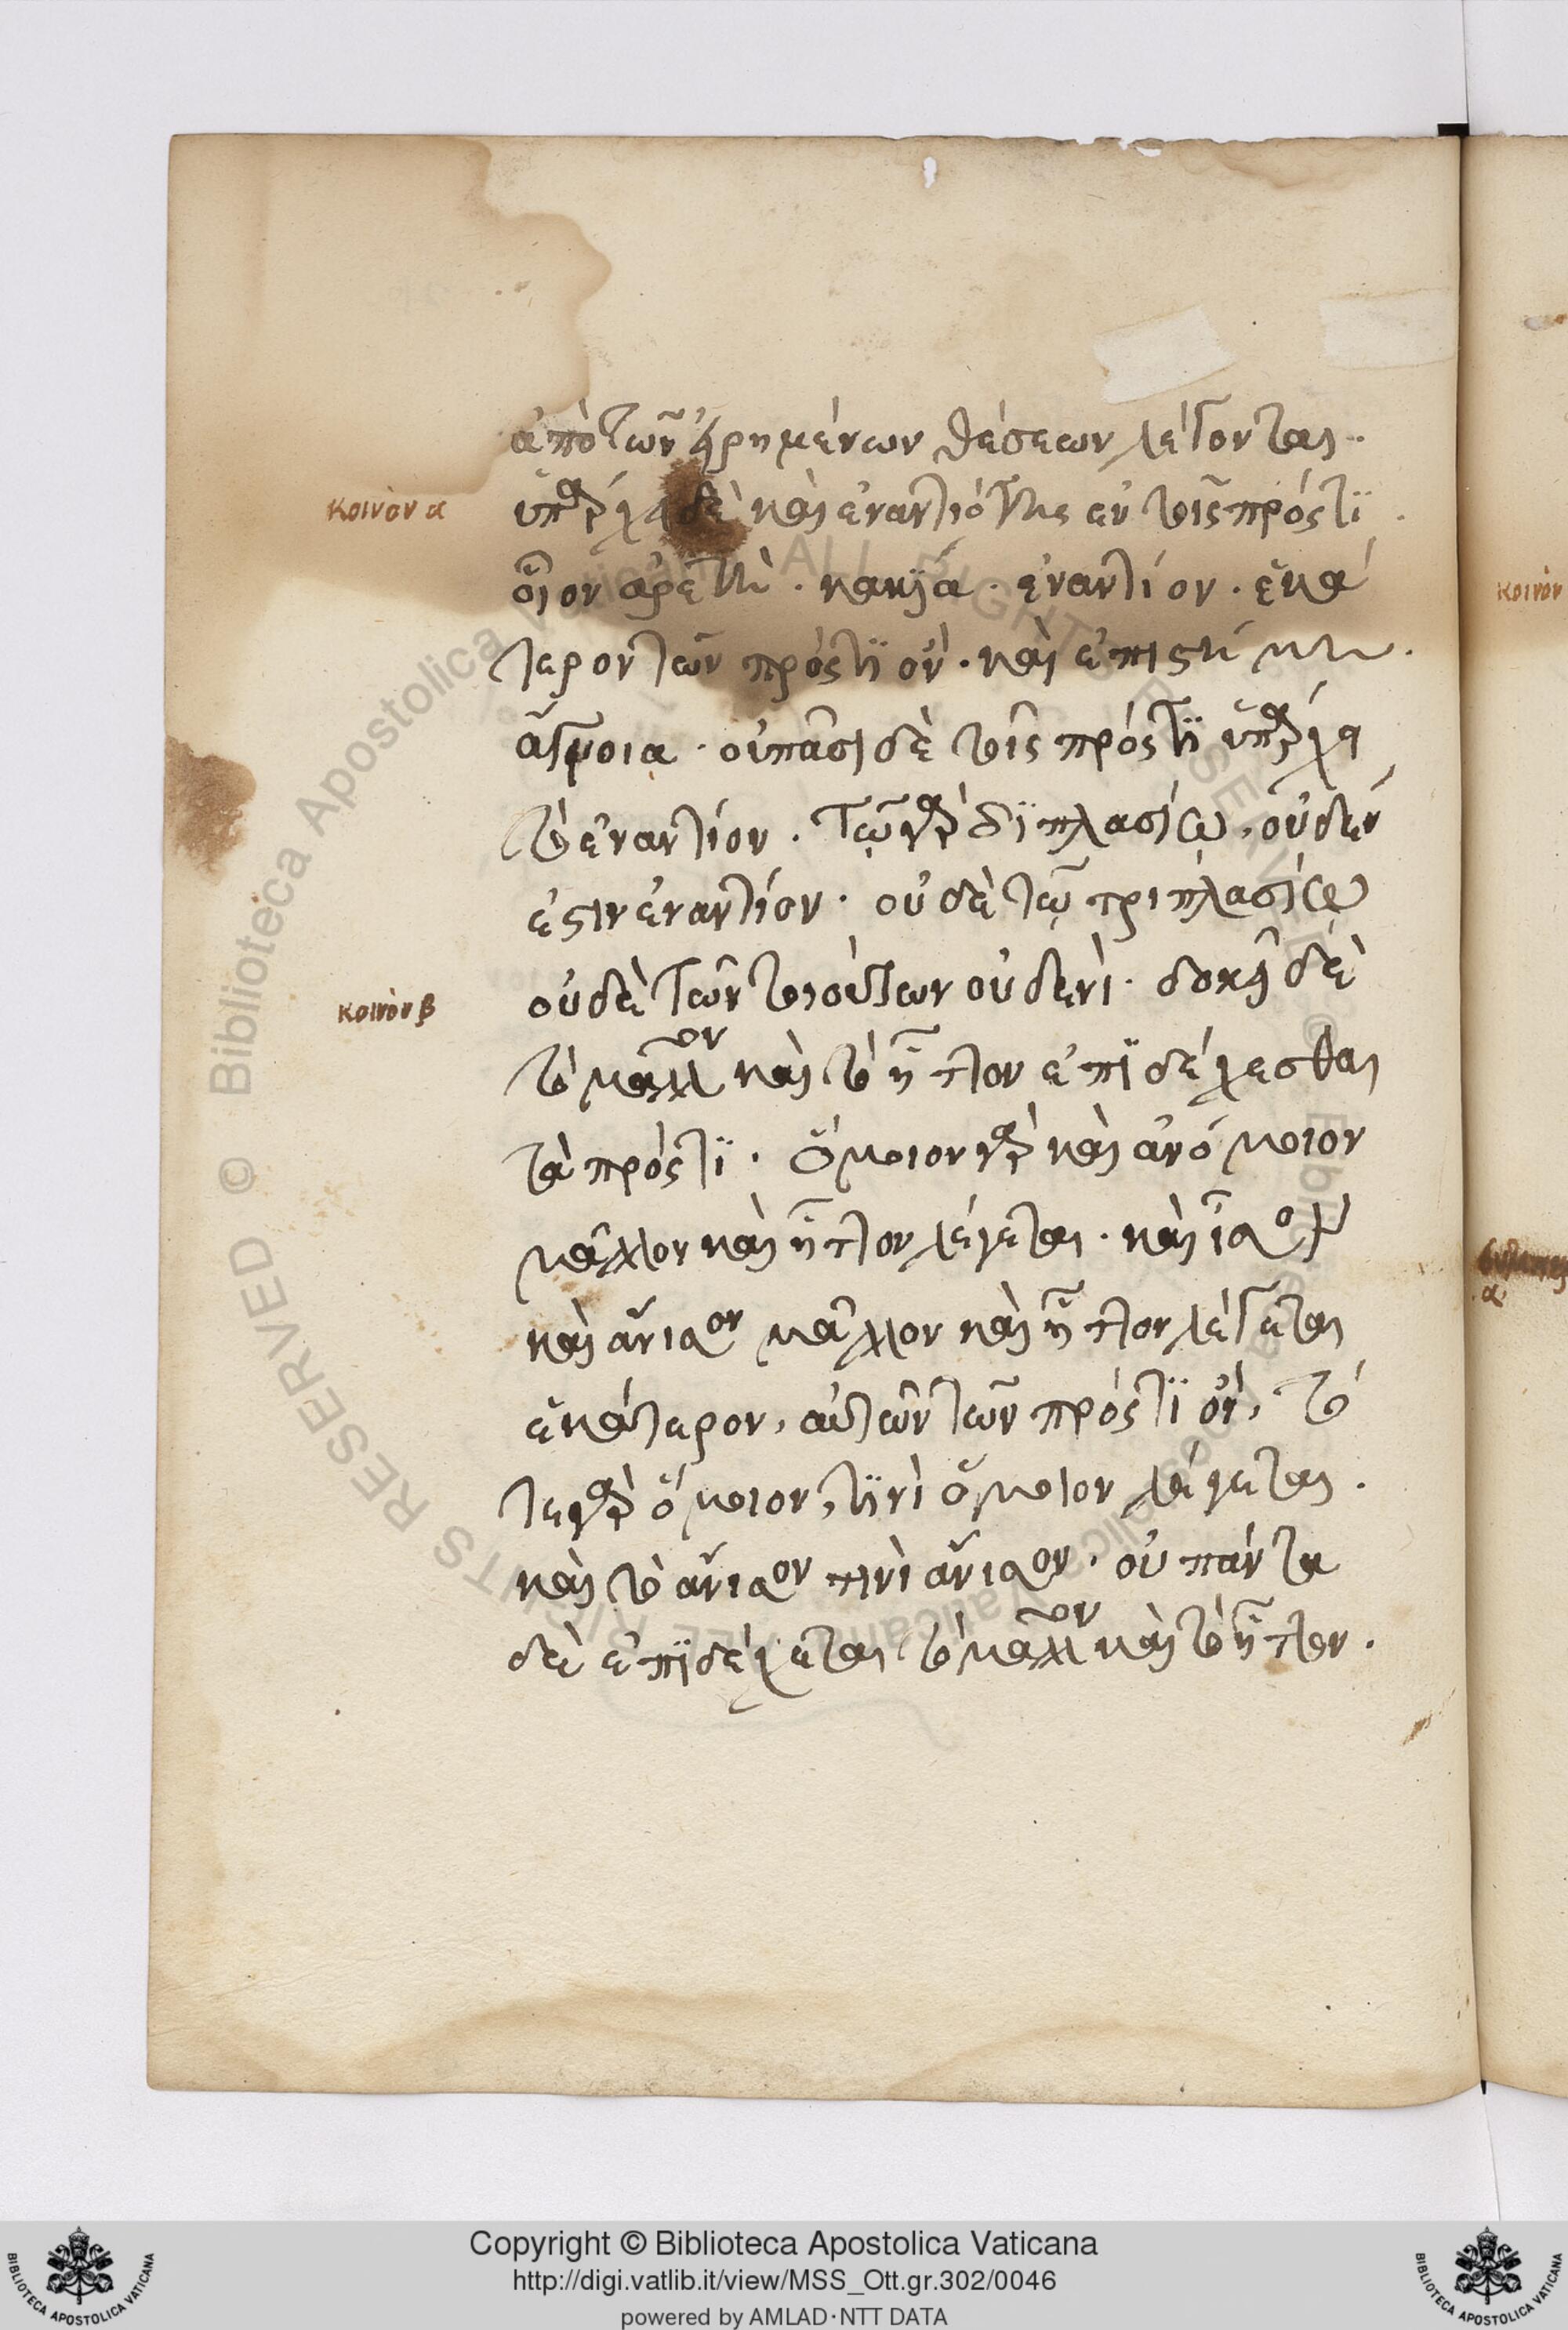 ἀπὸ τῶν εἰρημένων θέσεων λέγονται.
κοινὸν α
ὑπάρχει δὲ καὶ ἐναντιότης ἐν τοῖς πρός τϊ.
οἷον ἀρετὴ. κακίᾳ. ἐναντίον. ἑκά
τερον τῶν πρός τϊ ὄν. καὶ ἐπιστήμη.
ἀγνοία. οὐ πᾶσι δὲ τοῖς πρός τϊ ὑπάρχει
τὸ ἐναντίον. τῷ γὰρ διπλασίῳ, οὐδέν
ἐστιν ἐναντίον. οὐδὲ τῷ τριπλασίῳ
οὐδὲ τῶν τοιούτων οὐδενὶ. δοκεῖ δὲ
κοινὸν β
τὸ μᾶλλον καὶ τὸ ἧττον ἐπϊδέχεσθαι
τὰ πρός τϊ. ὅμοιον γὰρ καὶ ἀνόμοιον
μᾶλλον καὶ ἧττον λέγεται. καὶ ἴσον
καὶ ἄνισον μᾶλλον καὶ ἧττον λέγεται
ἑκάτερον, αὐτῶν τῶν πρός τϊ ὄν, τό
τε γὰρ ὅμοιον, τϊνὶ ὅμοιον λέγεται.
καὶ τὸ ἄνισον τινὶ ἄνισον. οὐ πάντα
δὲ ἐπϊδέχεται τὸ μᾶλλον καὶ τὸ ἧττον.
κοινὸν
α
BIBLIOTECA APOSTOLICA VATICANA
Copyright © Biblioteca Apostolica Vaticana
http://digi.vatlib.it/view/MSS_Ott.gr.302/0046
powered by AMLAD·NTT DATA
BIBLIOTECA APOSTOLICA VATICANA